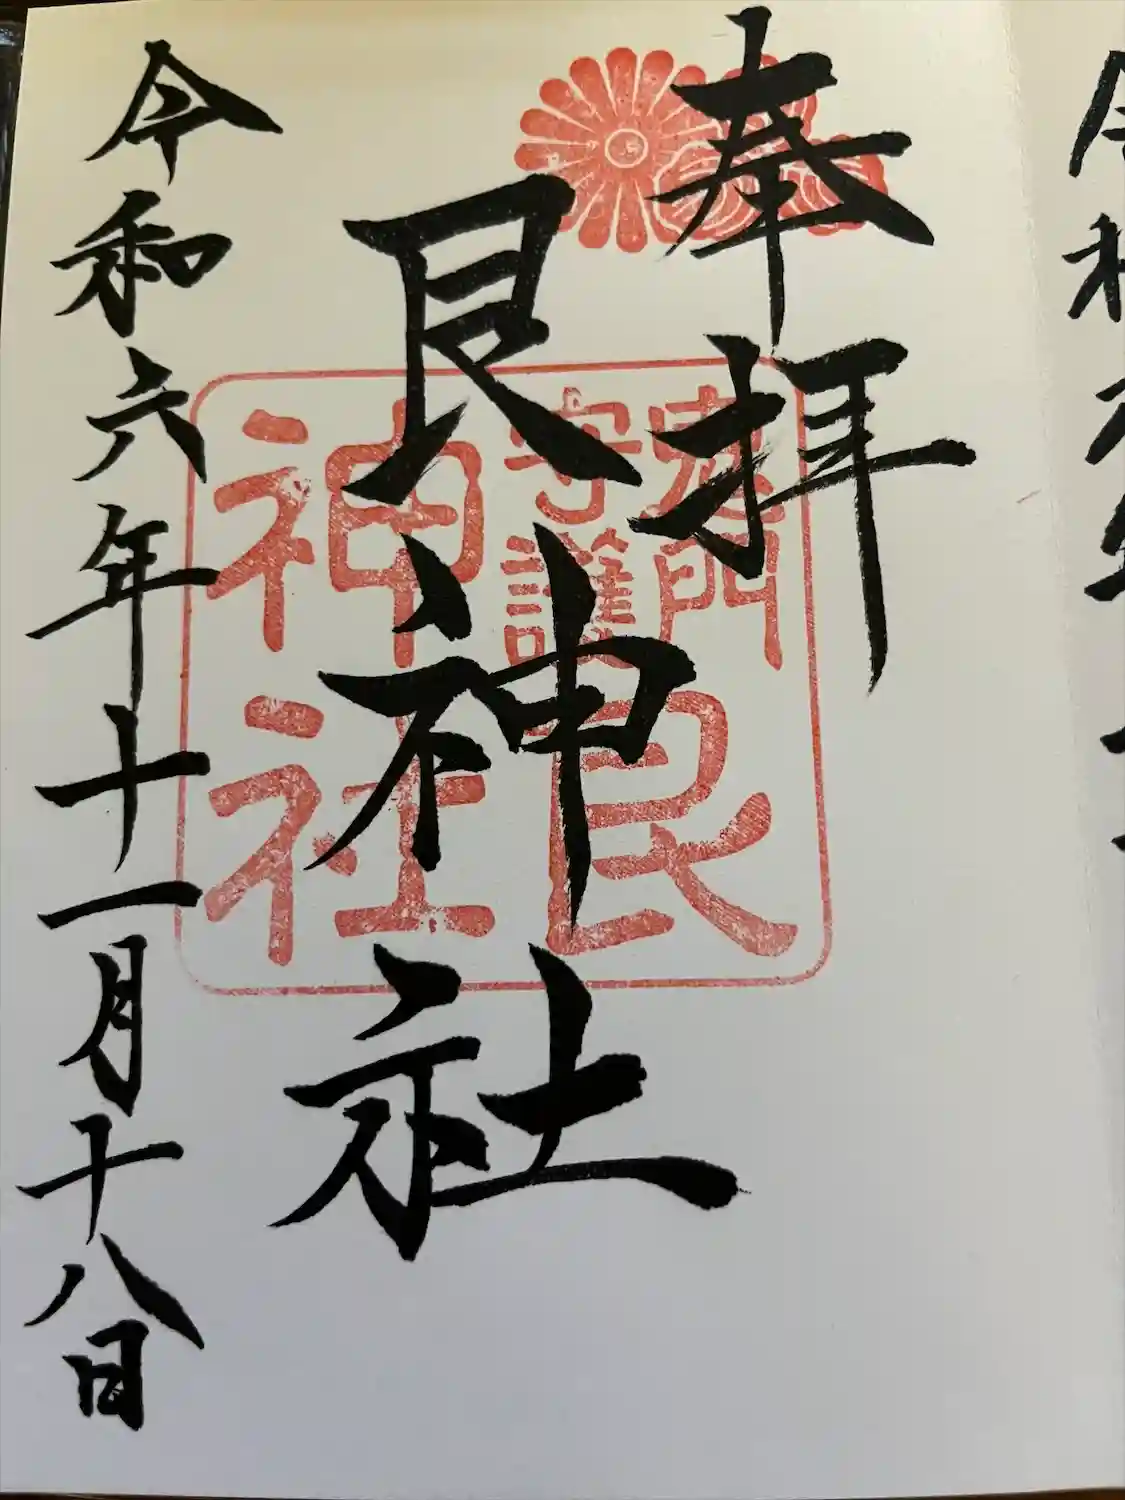 奉拝
艮神社
令和六年十一月十八日
鬼門
守護
艮
神社
令和